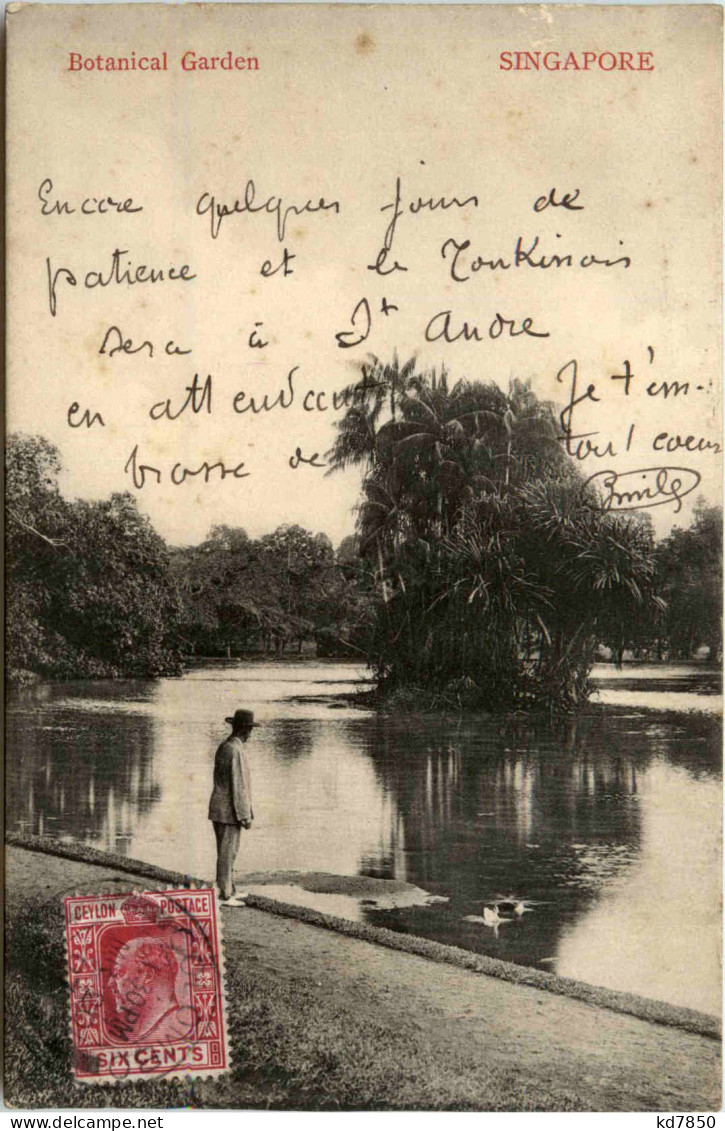 Botanical Garden
SINGAPORE
Encore quelques jours de
patience et le Tonkinois
sera à St Andre
en attendant Je t'em-
brasse de tout coeur
Emile
CEYLON POSTAGE
SIX CENTS
delcampe.net
kd7850